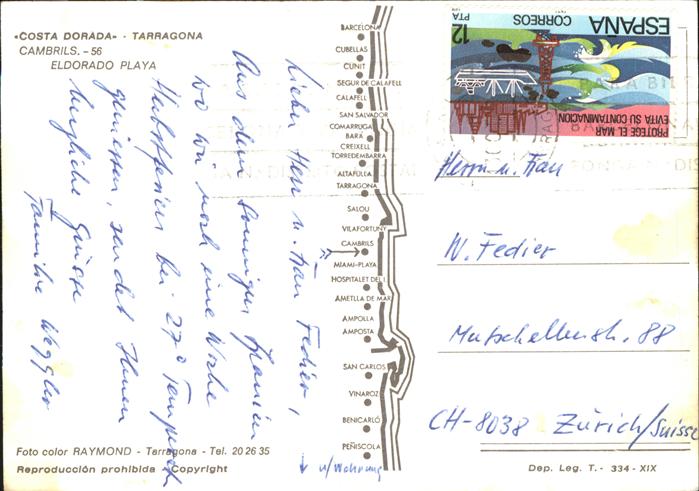 «COSTA DORADA» - TARRAGONA
CAMBRILS. - 56
ELDORADO PLAYA
Lieber Herr u. Frau Fedier,
Aus dem sonnigen Spanien
wo wir noch eine Woche
Herbstferien bei 27°
geniessen, sendet Ihnen
herzliche Grüsse
Familie Weggler
BARCELONA
CUBELLAS
CUNIT
SEGUR DE CALAFELL
CALAFELL
SAN SALVADOR
COMARRUGA
BARÁ
CREIXELL
TORREDEMBARRA
ALTAFULLA
TARRAGONA
SALOU
VILAFORTUNY
CAMBRILS
MIAMI-PLAYA
HOSPITALET DEL I.
AMETLLA DE MAR
AMPOLLA
AMPOSTA
SAN CARLOS
VINAROZ
BENICARLÓ
PEÑISCOLA
↓ u/Wohnung
12
PTA
CORREOS
ESPAÑA
PROTEGE EL MAR
EVITA SU CONTAMINACION
Herrn u. Frau
W. Fedier
Mutschellenstr. 88
CH-8038 Zürich/Suisse
Foto color RAYMOND - Tarragona - Tel. 20 26 35
Reproducción prohibida - Copyright
Dep. Leg. T. - 334 - XIX